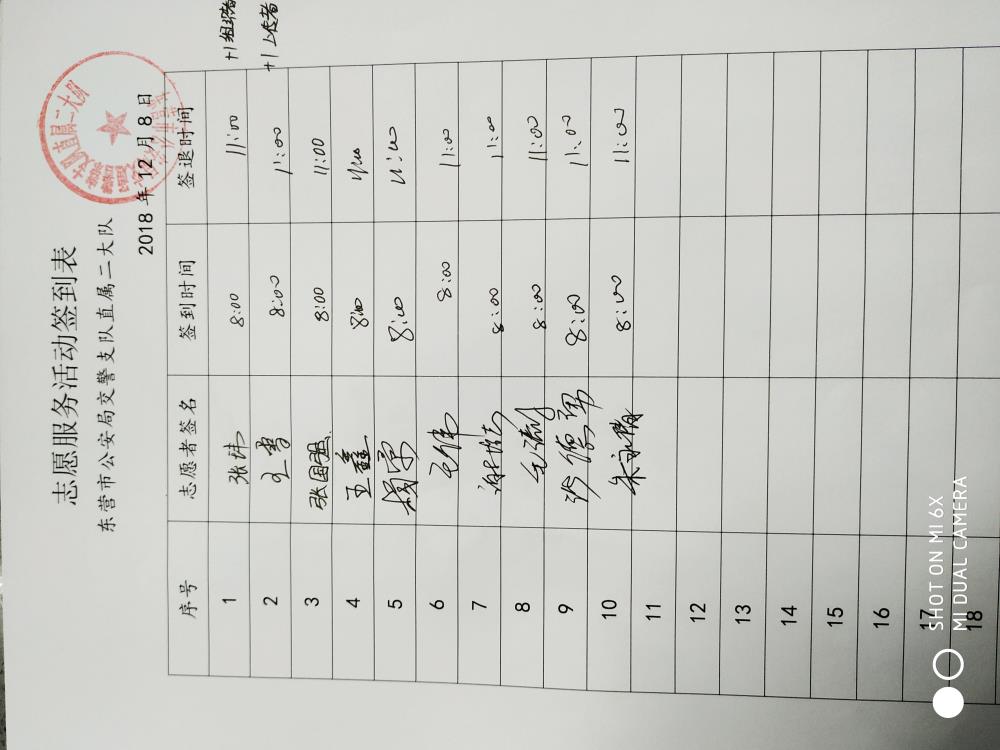 志愿服务活动签到表
东营市公安局交警支队直属二大队
2018 年 12 月 8 日
序号 志愿者签名 签到时间 签退时间
1 张炜 8:00 11:00 +1组织者
2 王雪 8:00 11:00 +1上传者
3 张国强 8:00 11:00
4 王鑫 8:00 11:00
5 杨荣 8:00 11:00
6 8:00 11:00
7 8:00 11:00
8 8:00 11:00
9 8:00 11:00
10 8:00 11:00
11
12
13
14
15
16
17
18
SHOT ON MI 6X
MI DUAL CAMERA